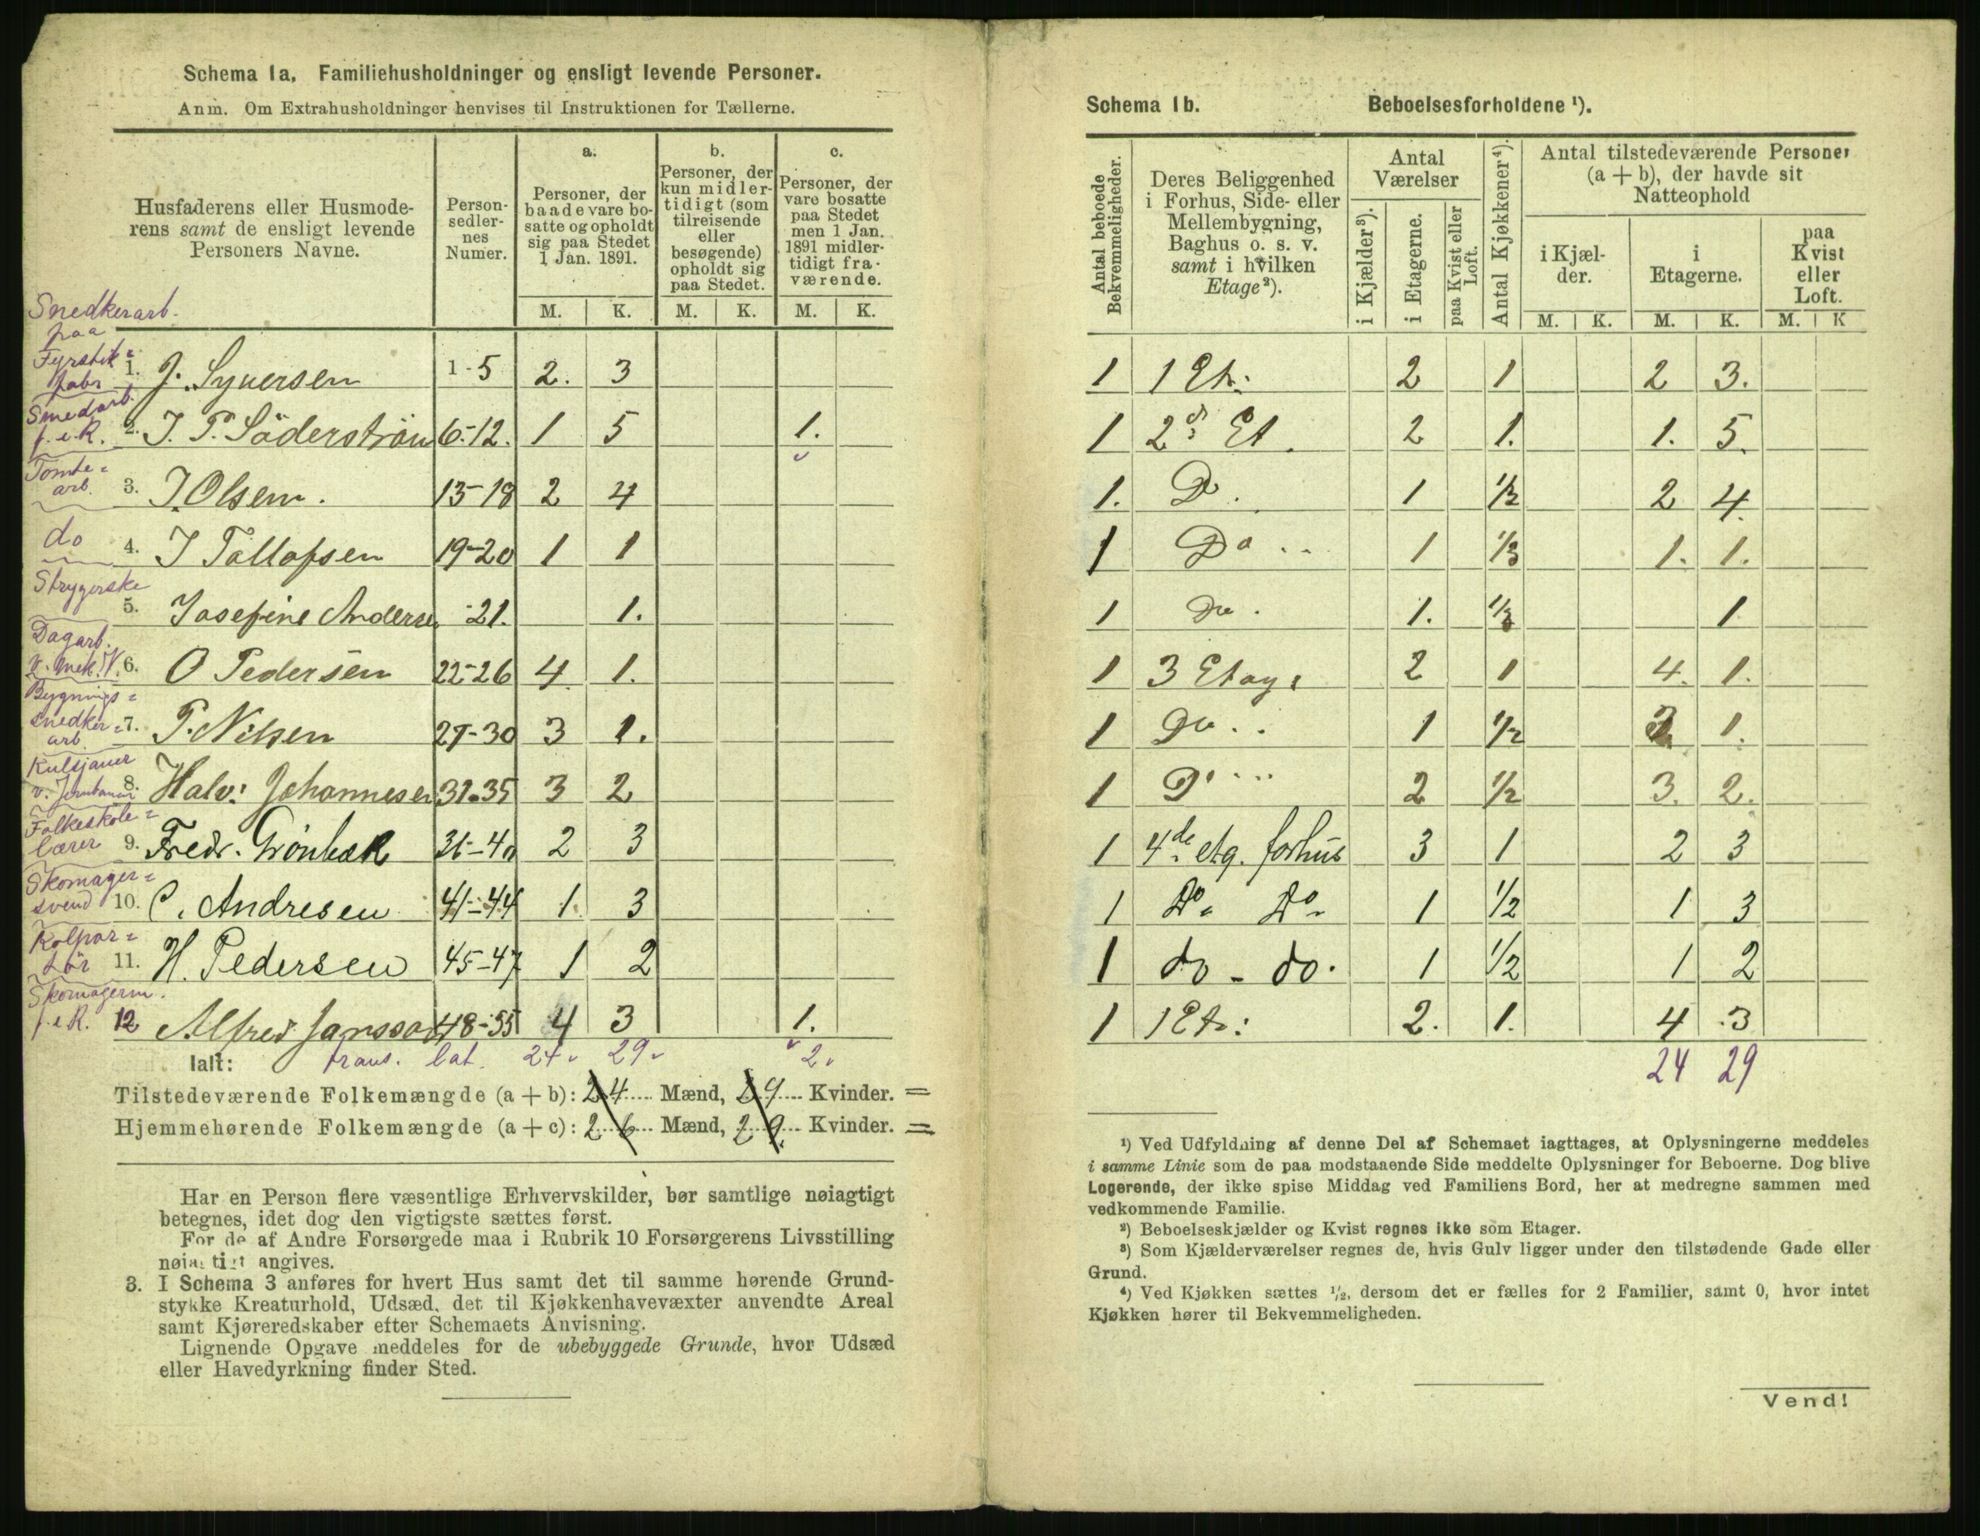 Schema 1a. Familiehusholdninger og ensligt levende Personer.
Anm. Om Extrahusholdninger henvises til Instruktionen for Tællerne.
Husfaderens eller Husmode-
rens samt de ensligt levende
Personers Navne.
Person-
sedler-
nes
Numer.
a.
Personer, der
baade vare bo-
satte og opholdt
sig paa Stedet
1 Jan. 1891.
b.
Personer, der
kun midler-
tidigt (som
tilreisende
eller
besøgende)
opholdt sig
paa Stedet.
c.
Personer, der
vare bosatte
paa Stedet
men 1 Jan.
1891 midler-
tidigt fra-
værende.
M. K. M. K. M. K.
Snedkerarb.
paa
Fyrstik=
fabr 1. J. Syversen 1-5 2. 3
Smedarb.
f.e.R. 2. J. P. Söderström 6-12. 1 5 1.
Tomte=
arb. 3. J. Olsen. 13-18 2 4
do 4. J Tollofsen 19-20 1 1
Strygerske
5. Josefine Anderse -21. 1.
Dagarb.
v. mek. V. 6. O Pedersen 22-26 4. 1.
Bygnings=
snedker=
arb. 7. P. Nilsen 27-30 3 1.
Kulsjauer
v. Jernbanen 8. Halv: Johannesen 31-35 3 2
Folkeskole=
lærer 9. Fredr. Grönbæk 36-40 2 3
Skomager=
svend 10. C. Andresen 41-44 1. 3
Kolpor=
tör 11. H. Pedersen 45-47 1 2
Skomagerm.
f.e.R. 12 Alfred Jansson 48-55 4 3 1.
Ialt: trans. lat. 24 29 2
Tilstedeværende Folkemængde (a + b): 24 Mænd, 29 Kvinder. =
Hjemmehørende Folkemængde (a + c): 26 Mænd, 29. Kvinder. =
Har en Person flere væsentlige Erhvervskilder, bør samtlige nøiagtigt
betegnes, idet dog den vigtigste sættes først.
For de af Andre Forsørgede maa i Rubrik 10 Forsørgerens Livsstilling
nøiagtigt angives.
3. I Schema 3 anføres for hvert Hus samt det til samme hørende Grund-
stykke Kreaturhold, Udsæd, det til Kjøkkenhavevæxter anvendte Areal
samt Kjøreredskaber efter Schemaets Anvisning.
Lignende Opgave meddeles for de ubebyggede Grunde, hvor Udsæd
eller Havedyrkning finder Sted.
Schema 1b. Beboelsesforholdene ¹).
Antal beboede
Bekvemmeligheder.
Deres Beliggenhed
i Forhus, Side- eller
Mellembygning,
Baghus o. s. v.
samt i hvilken
Etage²).
Antal
Værelser
i Kjælder³).
i Etagerne.
paa Kvist eller
Loft.
Antal Kjøkkener⁴).
Antal tilstedeværende Personer
(a + b), der havde sit
Natteophold
i Kjæl-
der.
i
Etagerne.
paa
Kvist
eller
Loft.
M. K. M. K. M. K
1 1 Et: 2 1 2 3.
1 2d Et. 2 1. 1. 5.
1. Do. 1 1/3 2 4.
1 Do .. 1 1/3 1. 1.
1 Do . 1. 1/3 1
1 3 Etage 2 1 4. 1.
1 Do .. 1 1/2 3 1.
1 D° ... 2 1/2 3. 2.
1 4de etg. forhus 3 1 2 3
1 Do Do 1 1/2 1 3
1 do - do. 1 1/2 1 2
1 1 Et: 2. 1. 4 3
24 29
¹) Ved Udfyldning af denne Del af Schemaet iagttages, at Oplysningerne meddeles
i samme Linie som de paa modstaaende Side meddelte Oplysninger for Beboerne. Dog blive
Logerende, der ikke spise Middag ved Familiens Bord, her at medregne sammen med
vedkommende Familie.
²) Beboelseskjælder og Kvist regnes ikke som Etager.
³) Som Kjælderværelser regnes de, hvis Gulv ligger under den tilstødende Gade eller
Grund.
⁴) Ved Kjøkken sættes ¹/₂, dersom det er fælles for 2 Familier, samt 0, hvor intet
Kjøkken hører til Bekvemmeligheden.
Vend!